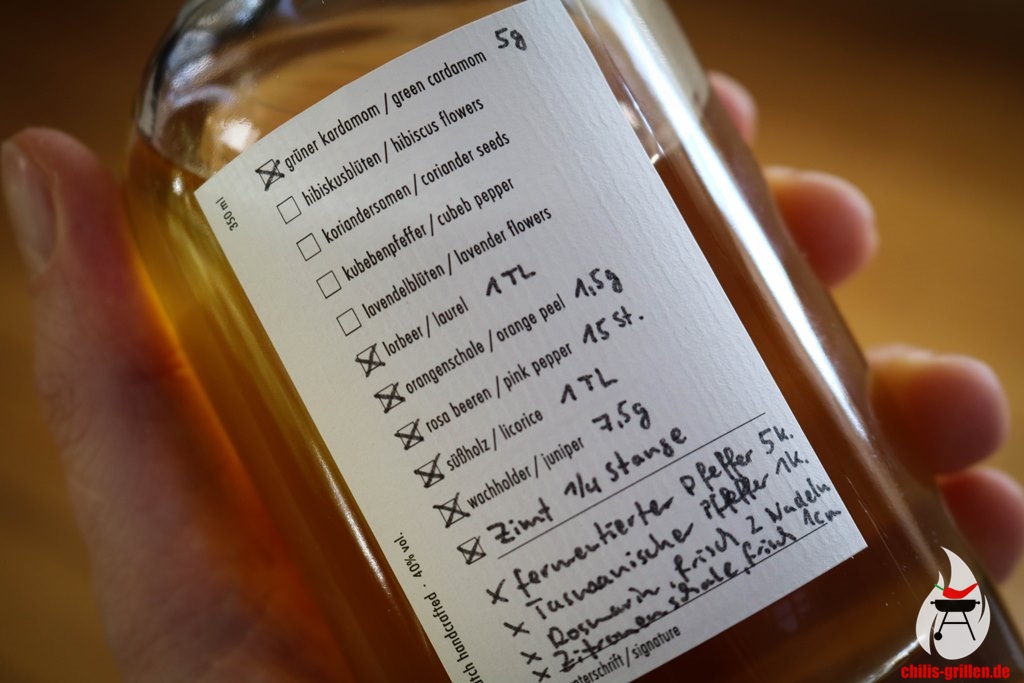 grüner kardamom / green cardamom 5g
hibiskusblüten / hibiscus flowers
koriandersamen / coriander seeds
kubebenpfeffer / cubeb pepper
lavendelblüten / lavender flowers
lorbeer / laurel 1 TL
orangenschale / orange peel 1,5g
rosa beeren / pink pepper 15 St.
süßholz / licorice 1 TL
wacholder / juniper 7,5g
Zimt 1/4 Stange
x fermentierter Pfeffer 5 k.
x Tasmanischer Pfeffer 1 k.
x Rosmarin frisch 2 Nadeln
x Zitronenschale frisch 1cm
nterschrift / signature
350 ml
tch handcrafted · 40% vol.
chilis-grillen.de